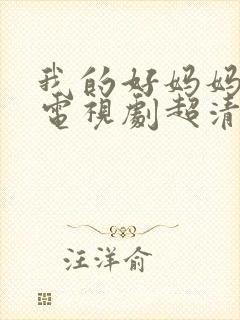 我的好妈妈
電視劇超清
汪洋俞